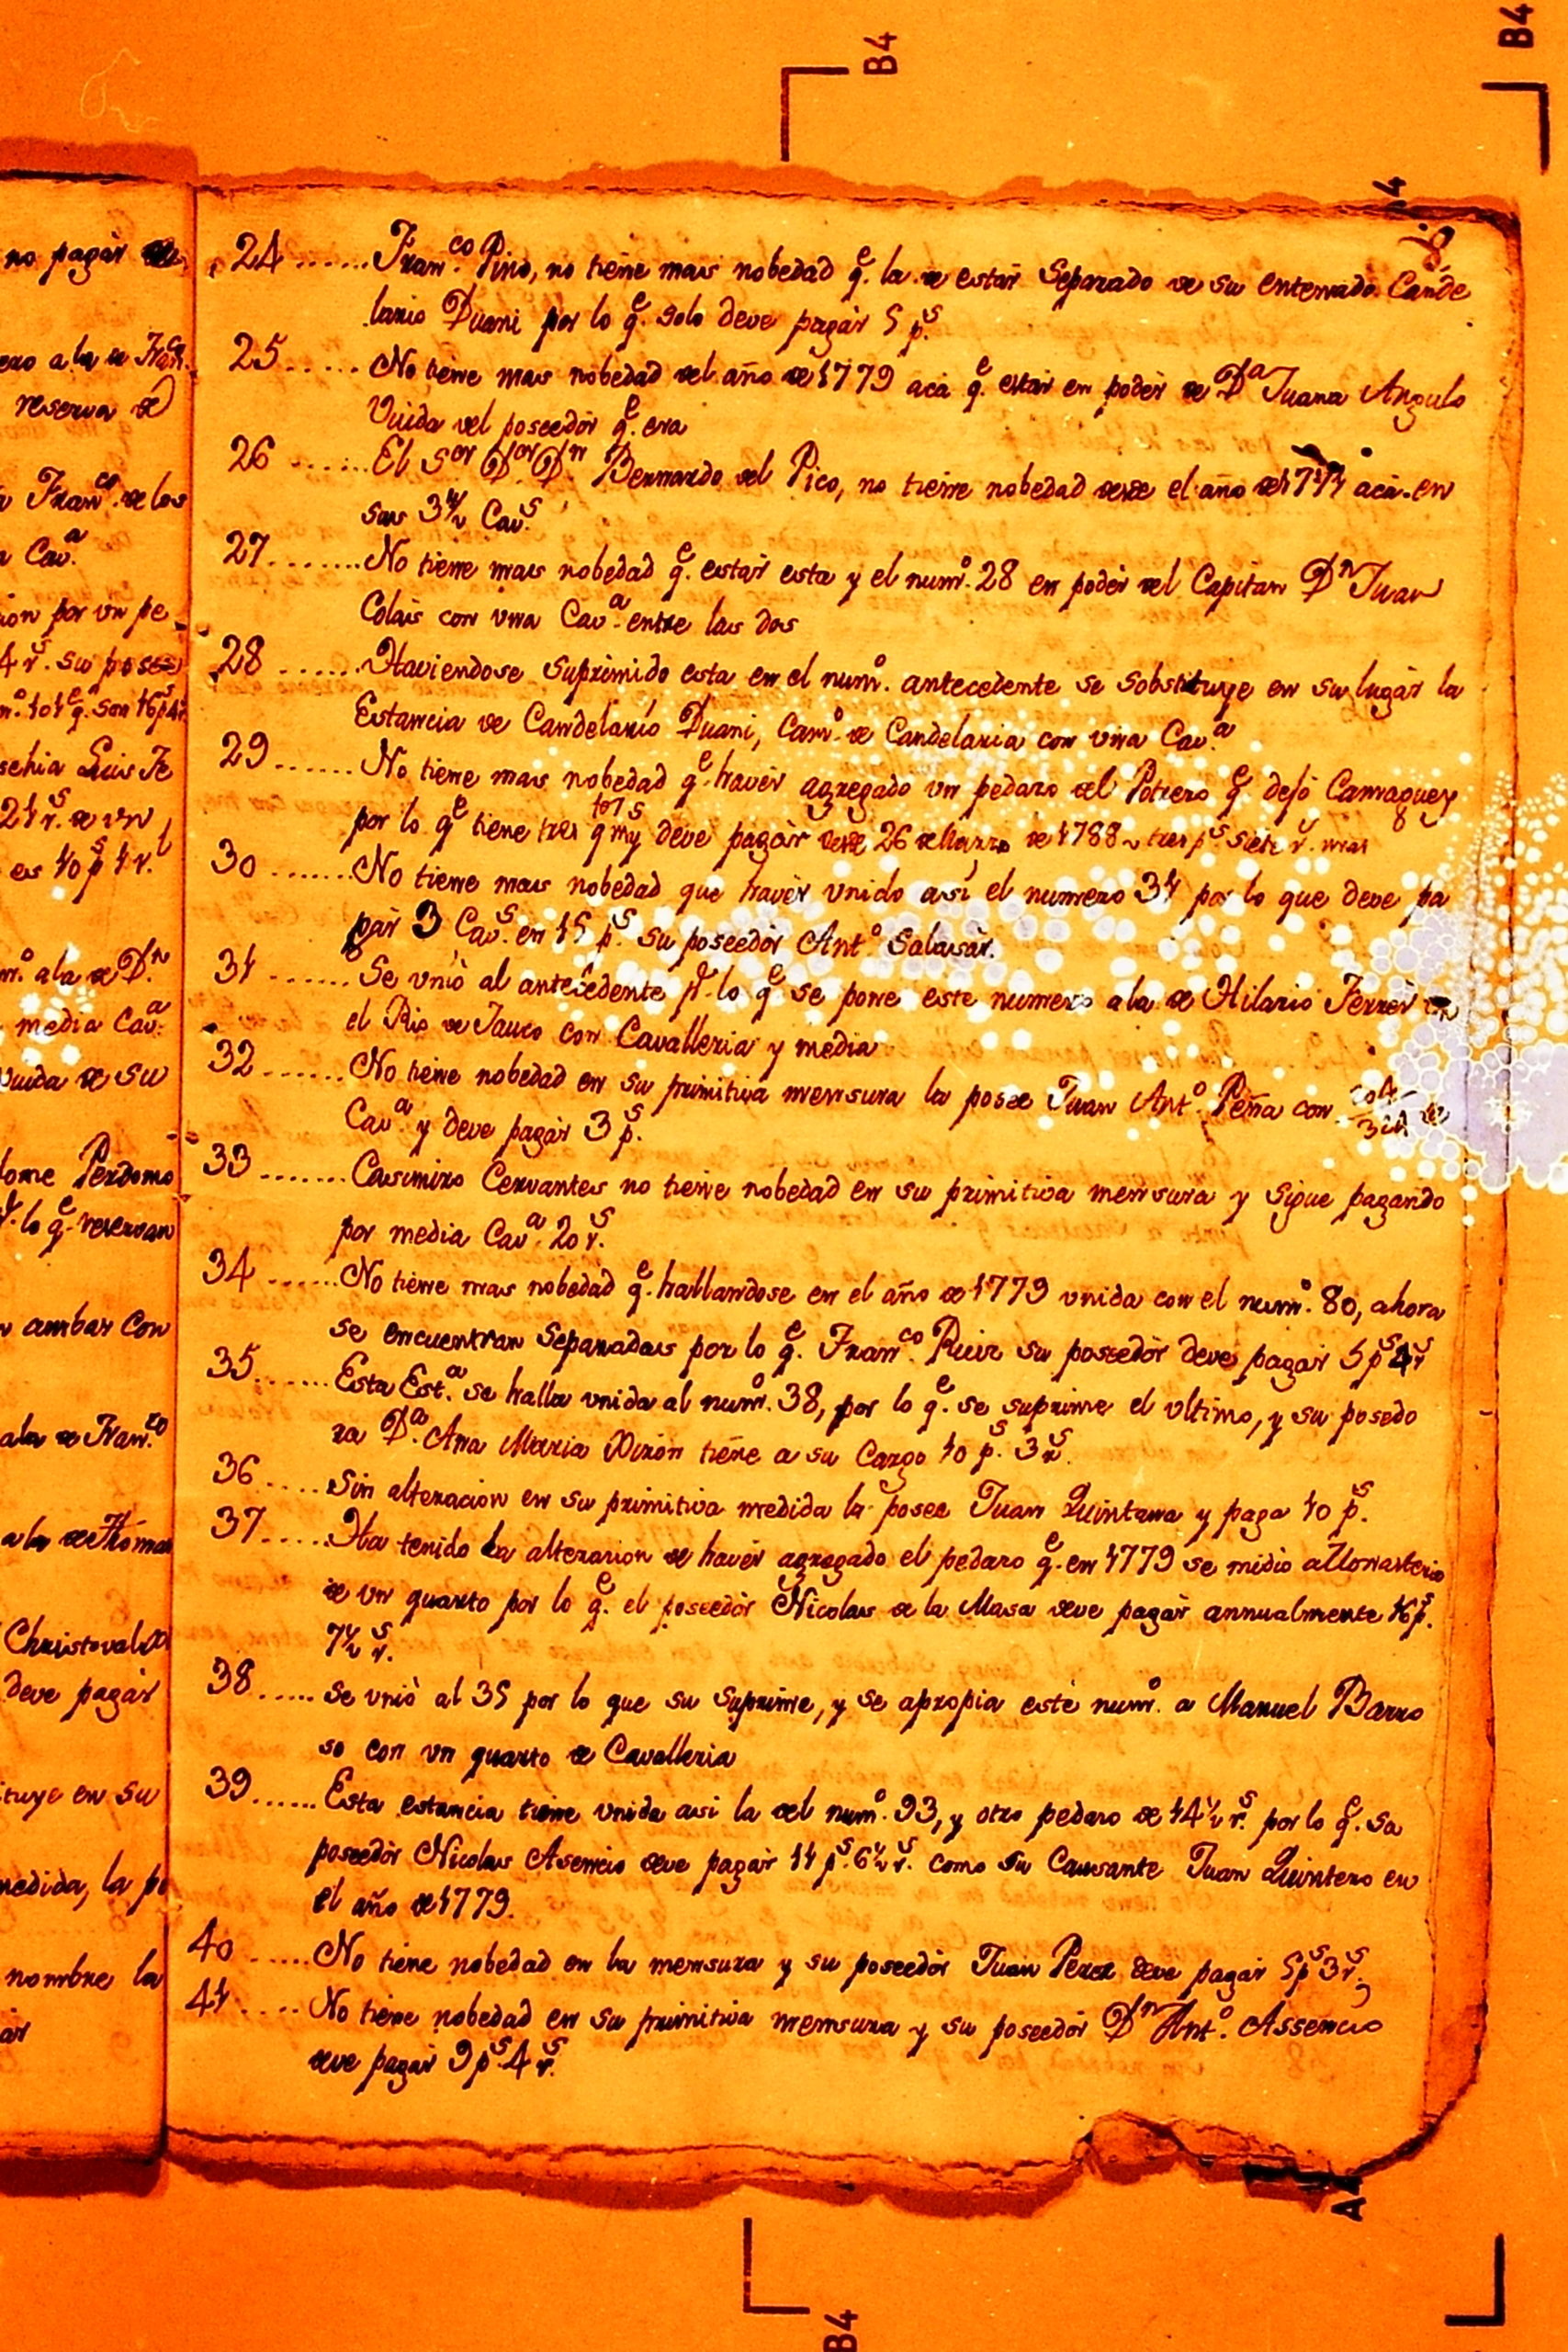 24 ...... Fran.co Pino, no tiene mas nobedad q.e la de estar Separado de su entenado Cande
lario Duani por lo q.e solo deve pagar 5 p.s
25 ..... No tiene mas nobedad del año de 1779 acá q.e estar en poder de D.a Juana Angulo
Viuda del poseedor q.e era
26 ...... El S.or D.or D.n Bernardo del Pico, no tiene nobedad desde el año de acá en
sus 3 1/2 Cav.s
27 ....... No tiene mas nobedad q.e estar esta y el num.o 28 en poder del Capitan D.n Juan
Colás con una Cav.a entre las dos
28 ...... Haviendose Suprimido esta en el num.o antecedente se sobstituye en su lugar la
Estancia de Candelario Duani, Cam.o de Candelaria con vna Cav.a
29 ...... No tiene mas nobedad q.e haver agregado vn pedazo del Potrero q.e dejó Camaguey
por lo q.e tiene tres deve pagar desde 26 de Marzo de 1788 tres p.s siete r.s mas
30 ....... No tiene mas nobedad que haver vnido así el numero 31 por lo que deve pa
gar 3 Cav.s en 15 p.s su poseedor Ant.o Salasár.
31 ...... Se vnió al antecedente p.r lo q.e se pone este numero a la de Hilario Ferrer en
el Rio de Jauco con Cavalleria y media
32 ...... No tiene nobedad en su primitiva mensura la posee Juan Ant.o Peña con de
Cav.a y deve pagar 3 p.s
33 ....... Casimiro Cervantes no tiene nobedad en su primitiva mensura y sigue pagando
por media Cav.a 20 r.s
34 ...... No tiene mas nobedad q.e hallandose en el año de 1779 vnida con el num.o 80, ahora
se encuentran Separadas por lo q.e Fran.co Ruiz su poseedor deve pagar 5 p.s 4 r.s
35 ...... Esta Est.a se halla vnida al num.o 38, por lo q.e se suprime el vltimo, y su posedo
ra D.a Ana Maria Xirón tiene a su Cargo 10 p.s 3 r.s
36 ..... Sin alteracion en su primitiva medida la posee Juan Quintana y paga 10 p.s
37 ..... Ha tenido la alterarion de haver agregado el pedazo q.e en 1779 se midió a Monasterio
de vn quarto por lo q.e el poseedor Nicolas de la Masa deve pagar annualmente 16 p.s
7 1/2 r.s
38 ..... se vnió al 35 por lo que su suprime, y se apropia este num.o a Manuel Barro
so con vn quarto de Cavalleria
39 ...... Esta estancia tiene vnida asi la del num.o 93, y otro pedazo de 14 1/2 r.s por lo q.e su
poseedor Nicolas Asencio deve pagar 11 p.s 6 1/2 r.s como su Causante Juan Quintero en
el año de 1779.
40 ..... No tiene nobedad en la mensura y su poseedor Juan Perez deve pagar 5 p.s 3 r.s
41 .... No tiene nobedad en su primitiva mensura y su poseedor D.n Ant.o Assencio
deve pagar 9 p.s 4 r.s
no pagar
reserva de
Fran.co de los
Cav.a
ion por vn pe
4 r.s su posee
sehia Luis Fe
21 r.s de vn
es 10 p.s 1 r.
a la de D.n
media Cav.a
Viuda de su
lome Perdomo
lo q.e reservan
ambas con
a la de Fran.co
a la de Thomas
Christoval
deve pagar
tuye en su
medida, la po
nombre la
ar
B4
B4
A4
B4